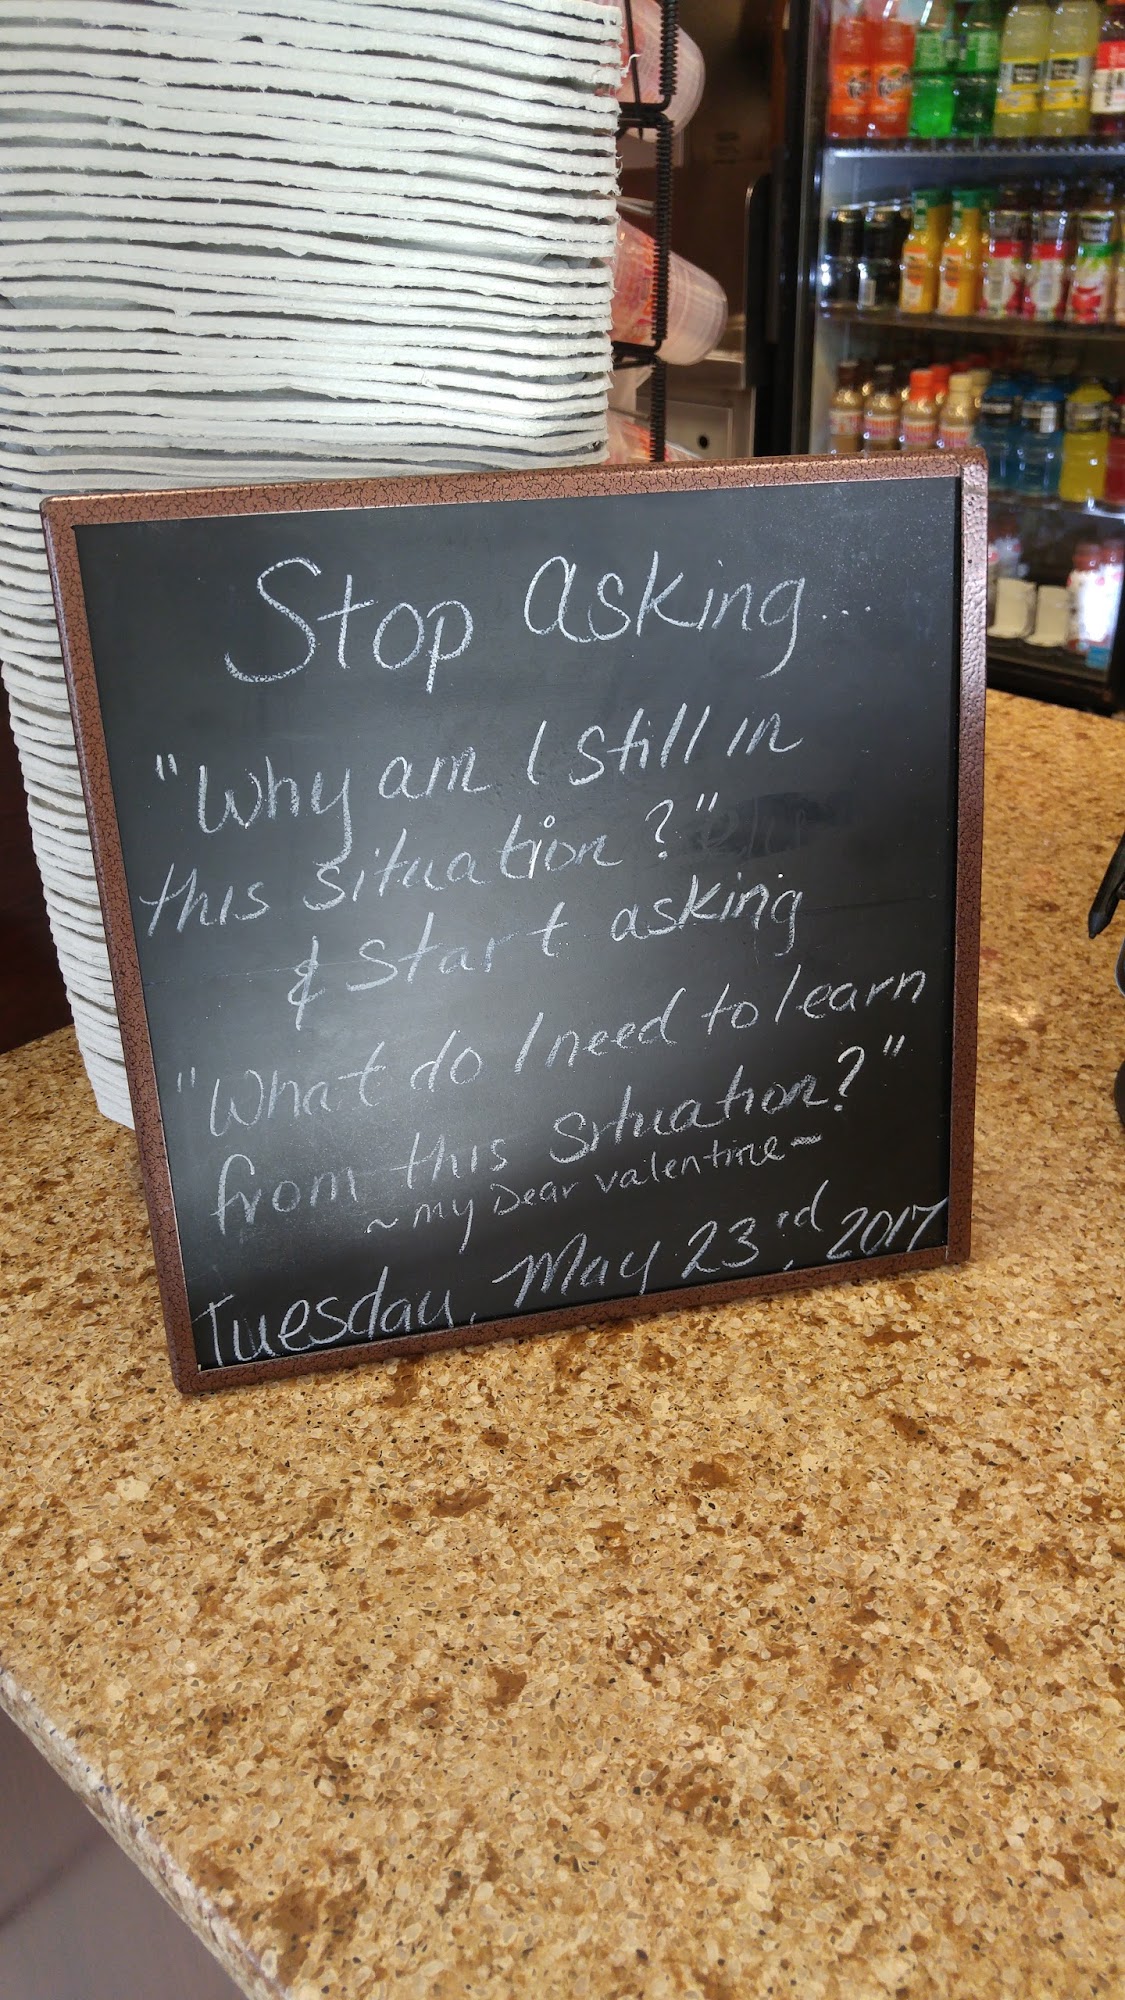 Stop asking...
"Why am I still in
this situation?"
& start asking
"What do I need to learn
from this situation?"
~my Dear valentine~
Tuesday, May 23rd, 2017